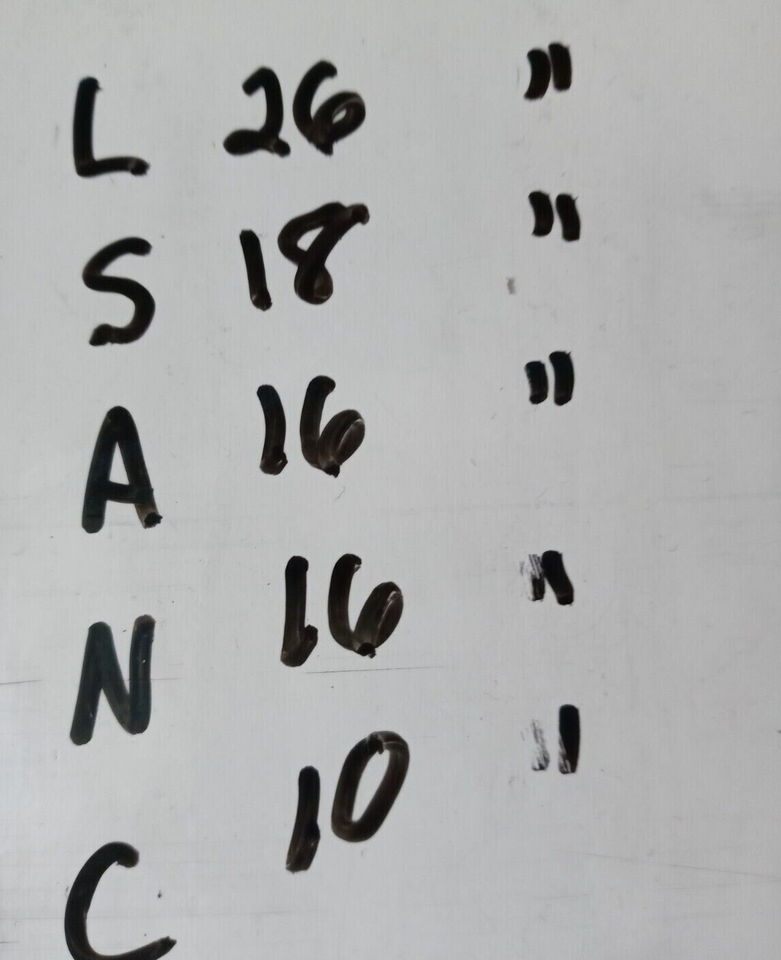 L 26 "
S 18 "
A 16 "
N 16 "
C 10 "